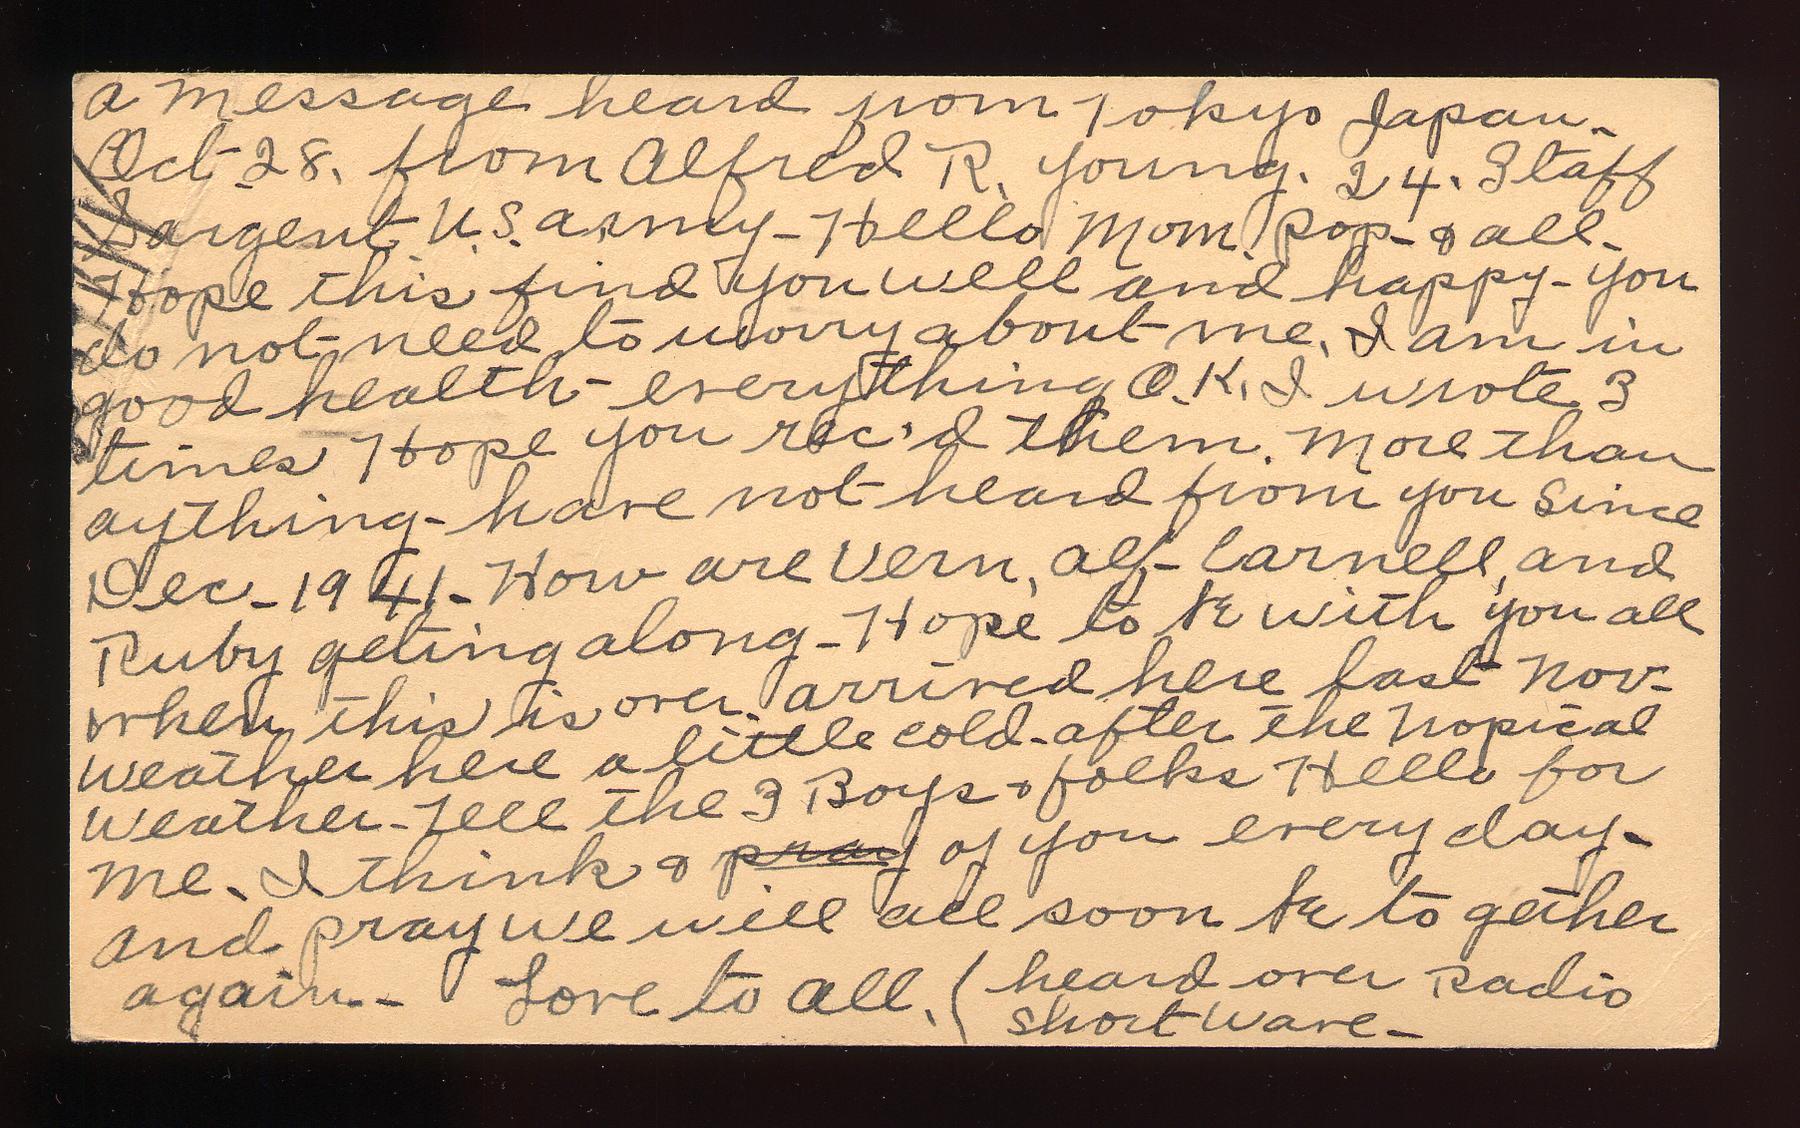 a message heard from Tokyo Japan-
Oct 28. from Alfred R. Young. 24. Staff
Sargent U.S. army- Hello Mom Pop- & all-
Hope this find you well and happy- you
do not need to worry about me. I am in
good health- everything O.K. I wrote 3
times Hope you rec'd them. More than
aything- have not heard from you since
Dec- 1941- How are Vern, Alf- Carnell, and
Ruby geting along- Hope to be with you all
when this is over. arrived here last Nov-
weather here a little cold- after the tropical
weather- Tell the 3 Boys & folks Hello for
me. I think & pray of you every day-
and pray we will all soon be to gether
again- Love to all. ( heard over Radio
short wave-